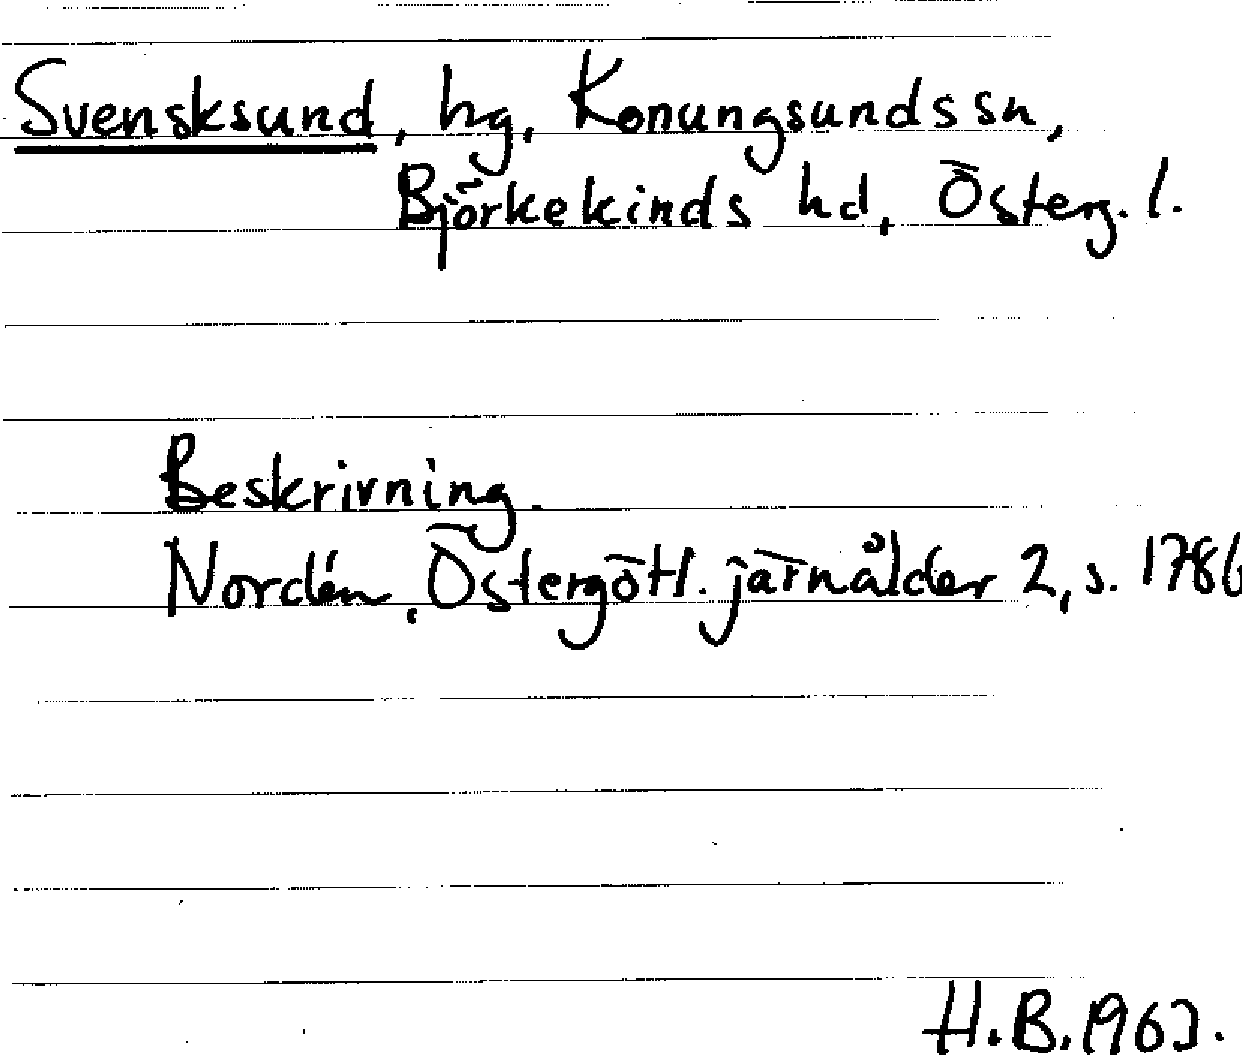 Svensksund, hg, Konungsunds sn,
Björkekinds hd, Österg. l.
Beskrivning.
Nordén, Östergötl. järnålder 2, s. 178
H.B. 1963.